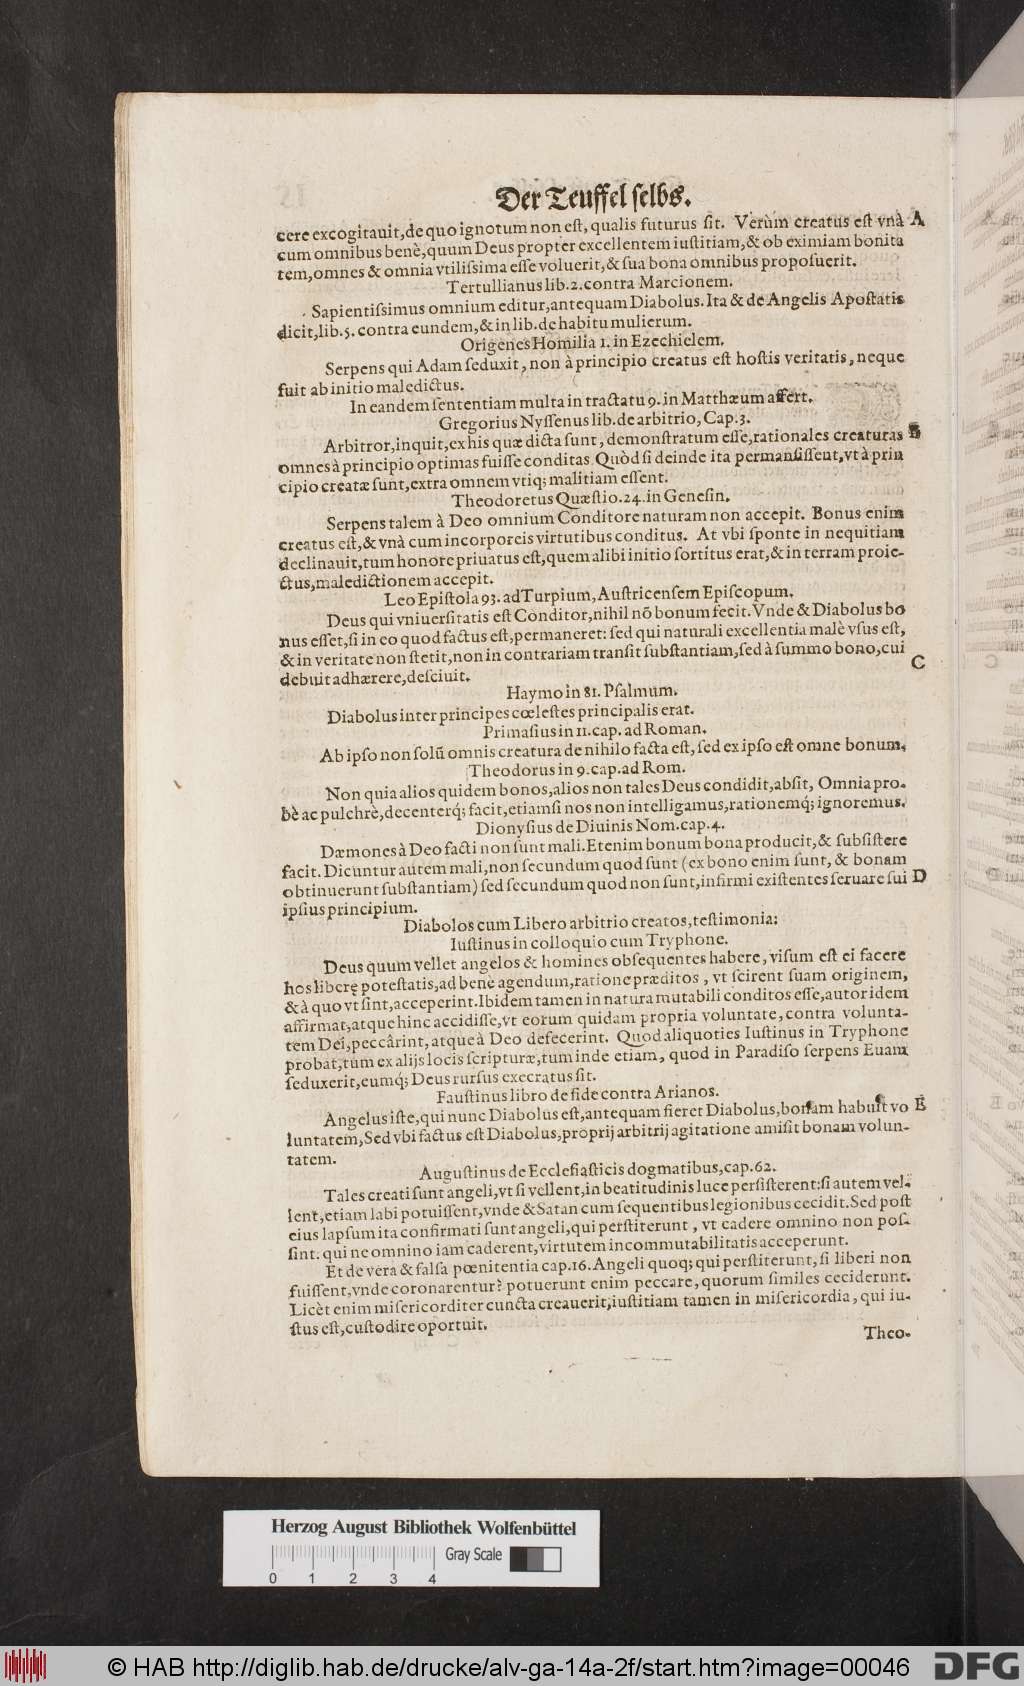 Der Teuffel selbs.
cere excogitauit, de quo ignotum non est, qualis futurus sit. Verùm creatus est vnà A
cum omnibus benè, quum Deus propter excellentem iustitiam, & ob eximiam bonita
tem, omnes & omnia vtilissima esse voluerit, & sua bona omnibus proposuerit.
Tertullianus lib. 2. contra Marcionem.
Sapientissimus omnium editur, antequam Diabolus. Ita & de Angelis Apostatis
dicit, lib. 5. contra eundem, & in lib. de habitu mulierum.
Origenes Homilia 1. in Ezechielem.
Serpens qui Adam seduxit, non à principio creatus est hostis veritatis, neque
fuit ab initio maledictus.
In eandem sententiam multa in tractatu 9. in Matthæum affert.
Gregorius Nyssenus lib. de arbitrio, Cap. 3.
Arbitror, inquit, ex his quæ dicta sunt, demonstratum esse, rationales creaturas B
omnes à principio optimas fuisse conditas. Quòd si deinde ita permansissent, vt à prin
cipio creatæ sunt, extra omnem vtiq; malitiam essent.
Theodoretus Quæstio. 24. in Genesin.
Serpens talem à Deo omnium Conditore naturam non accepit. Bonus enim
creatus est, & vnà cum incorporeis virtutibus conditus. At vbi sponte in nequitiam
declinauit, tum honore priuatus est, quem alibi initio sortitus erat, & in terram proie-
ctus, maledictionem accepit.
Leo Epistola 93. ad Turpium, Austricensem Episcopum.
Deus qui vniuersitatis est Conditor, nihil nō bonum fecit. Vnde & Diabolus bo
nus esset, si in eo quod factus est, permaneret: sed qui naturali excellentia malè vsus est,
& in veritate non stetit, non in contrariam transit substantiam, sed à summo bono, cui C
debuit adhærere, desciuit.
Haymo in 81. Psalmum.
Diabolus inter principes cœlestes principalis erat.
Primasius in 11. cap. ad Roman.
Ab ipso non solũ omnis creatura de nihilo facta est, sed ex ipso est omne bonum.
Theodorus in 9. cap. ad Rom.
Non quia alios quidem bonos, alios non tales Deus condidit, absit, Omnia pro-
bè ac pulchrè, decenterq; facit, etiamsi nos non intelligamus, rationemq; ignoremus.
Dionysius de Diuinis Nom. cap. 4.
Dæmones à Deo facti non sunt mali. Etenim bonum bona producit, & subsistere
facit. Dicuntur autem mali, non secundum quod sunt (ex bono enim sunt, & bonam
obtinuerunt substantiam) sed secundum quod non sunt, infirmi existentes seruare sui D
ipsius principium.
Diabolos cum Libero arbitrio creatos, testimonia:
Iustinus in colloquio cum Tryphone.
Deus quum vellet angelos & homines obsequentes habere, visum est ei facere
hos liberę potestatis, ad benè agendum, ratione præditos, vt scirent suam originem,
& à quo vt sint, acceperint. Ibidem tamen in natura mutabili conditos esse, autor idem
affirmat, atque hinc accidisse, vt eorum quidam propria voluntate, contra volunta-
tem Dei, peccârint, atque à Deo defecerint. Quod aliquoties Iustinus in Tryphone
probat, tum ex alijs locis scripturæ, tum inde etiam, quod in Paradiso serpens Euam
seduxerit, eumq; Deus rursus execratus sit.
Faustinus libro de fide contra Arianos.
Angelus iste, qui nunc Diabolus est, antequam fieret Diabolus, bonam habuit vo E
luntatem, Sed vbi factus est Diabolus, proprij arbitrij agitatione amisit bonam volun-
tatem.
Augustinus de Ecclesiasticis dogmatibus, cap. 62.
Tales creati sunt angeli, vt si vellent, in beatitudinis luce persisterent: si autem vel-
lent, etiam labi potuissent, vnde & Satan cum sequentibus legionibus cecidit. Sed post
eius lapsum ita confirmati sunt angeli, qui perstiterunt, vt cadere omnino non pos-
sint: qui ne omnino iam caderent, virtutem incommutabilitatis acceperunt.
Et de vera & falsa pœnitentia cap. 16. Angeli quoq; qui perstiterunt, si liberi non
fuissent, vnde coronarentur? potuerunt enim peccare, quorum similes ceciderunt.
Licèt enim misericorditer cuncta creauerit, iustitiam tamen in misericordia, qui iu-
stus est, custodire oportuit.
Theo-
Herzog August Bibliothek Wolfenbüttel
Gray Scale
0 1 2 3 4
© HAB http://diglib.hab.de/drucke/alv-ga-14a-2f/start.htm?image=00046
DFG